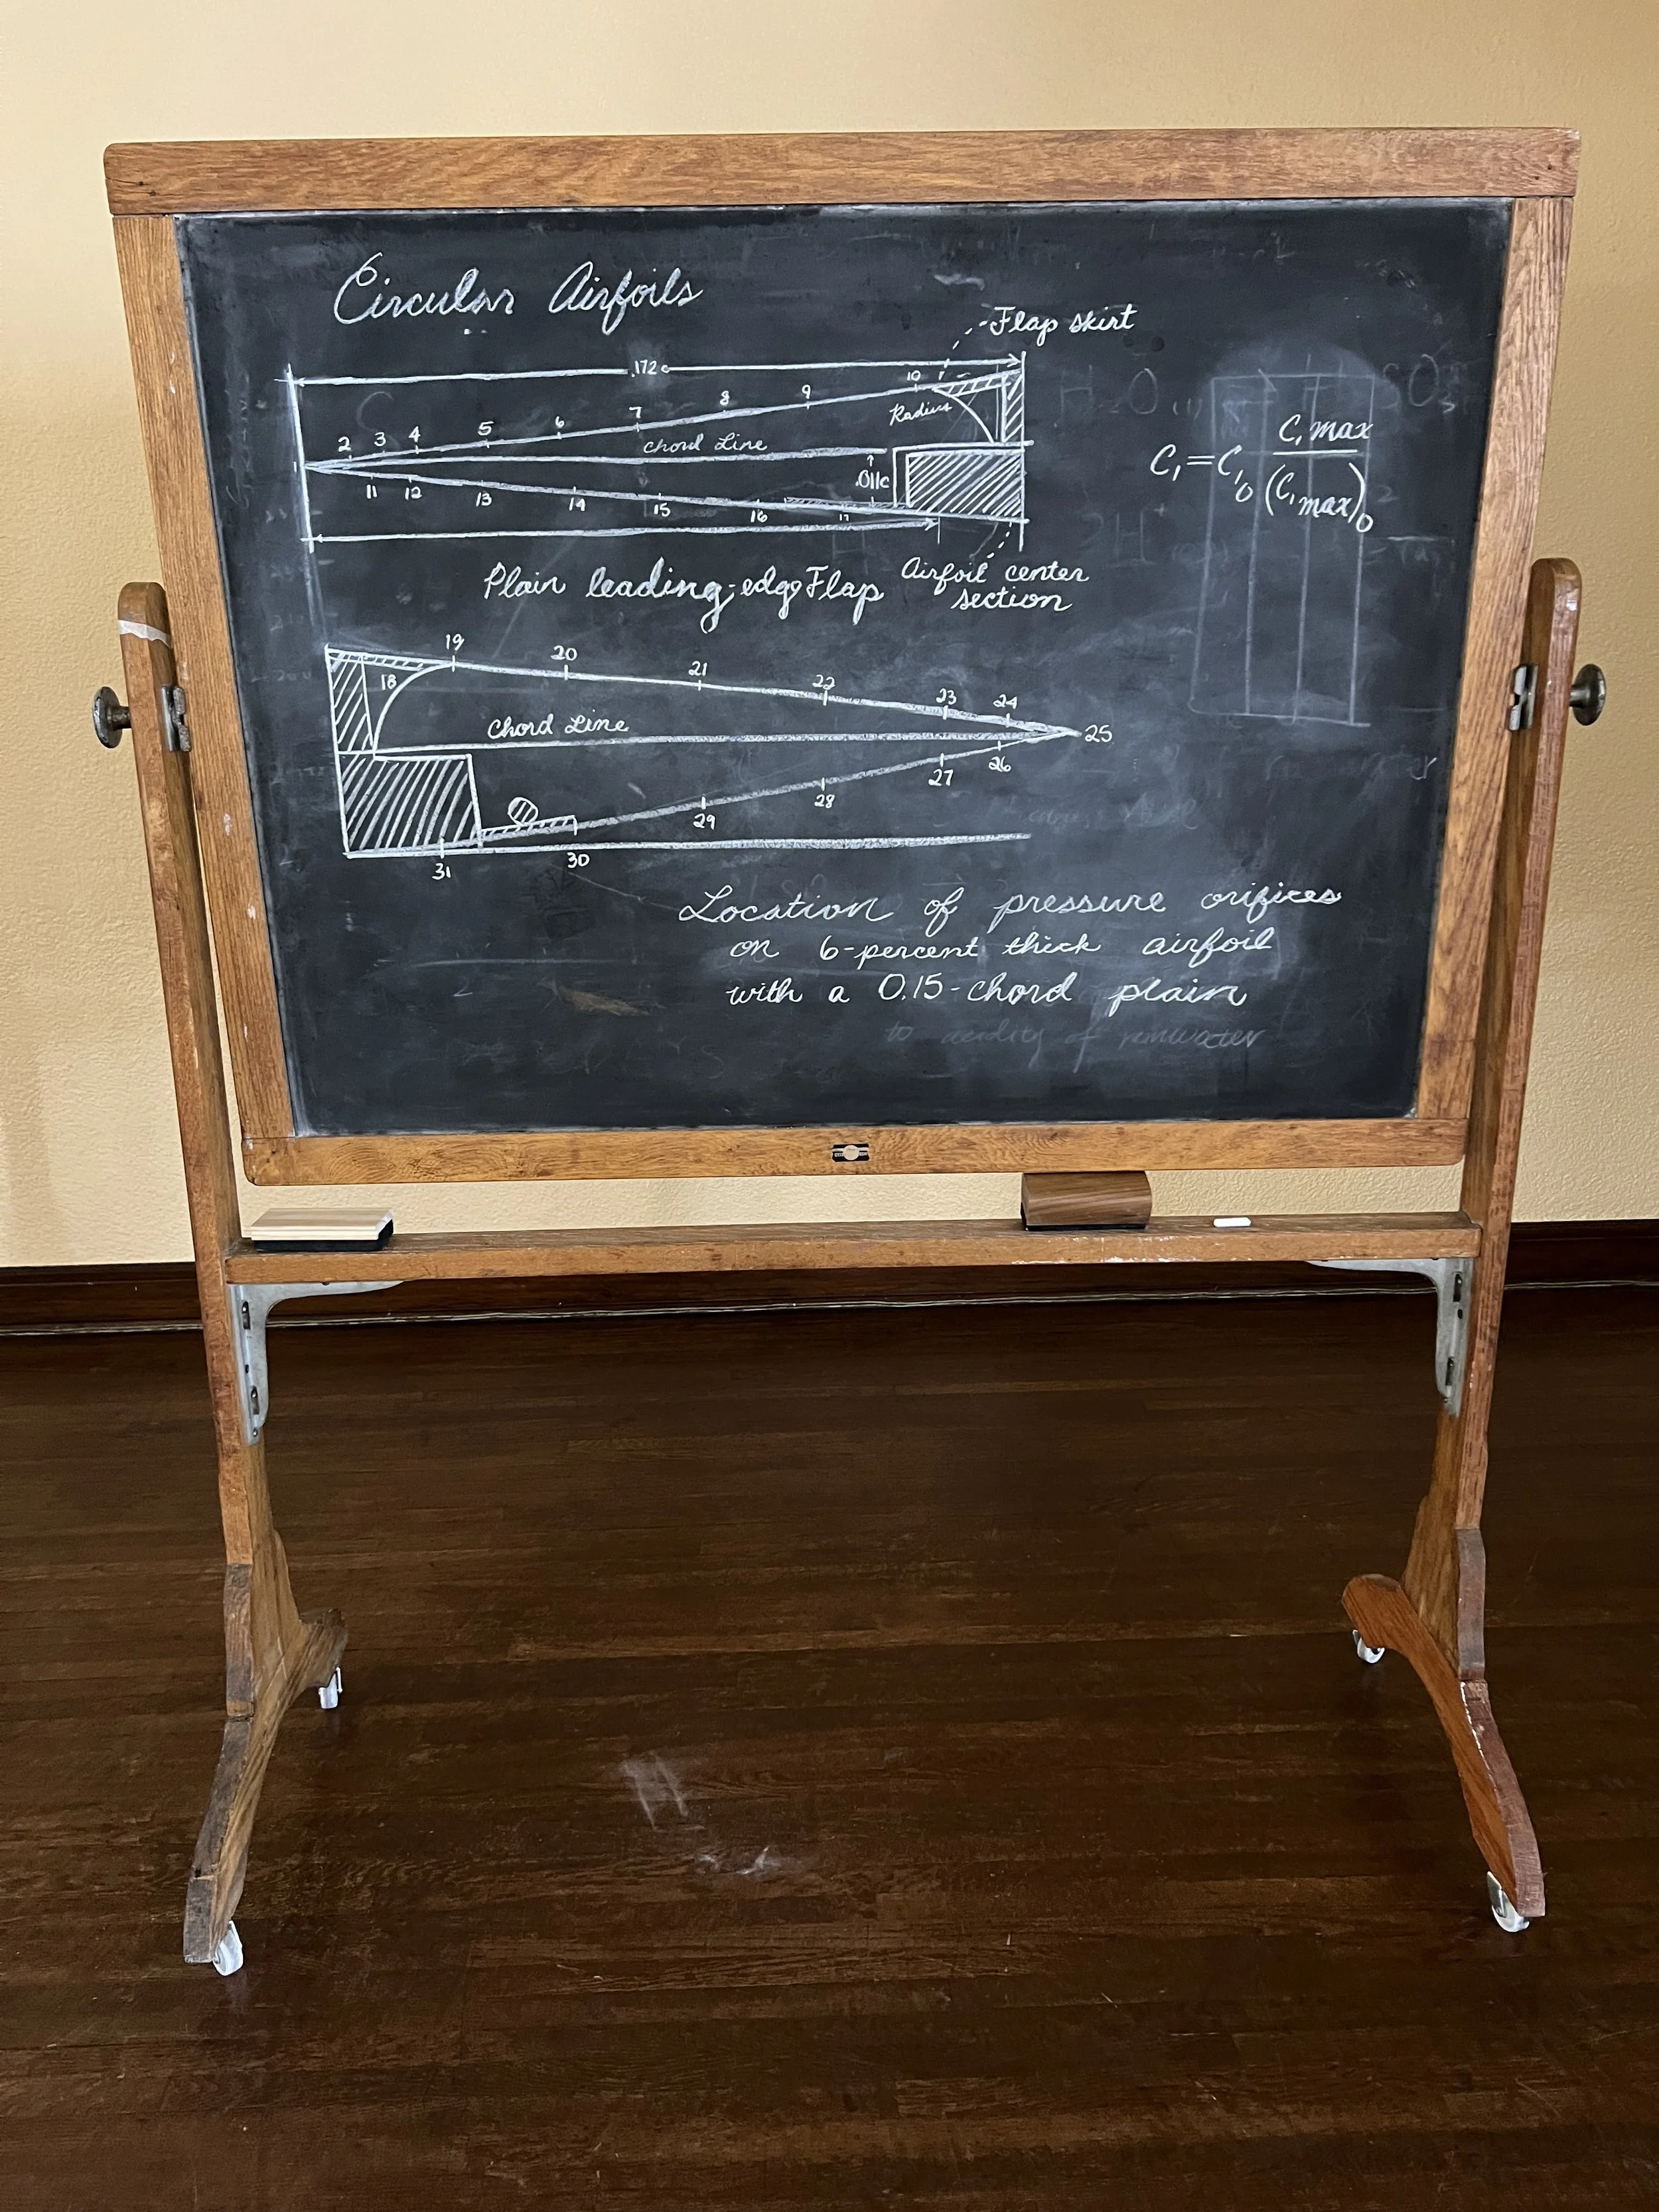 Circular Airfoils
Flap skirt
.172c
2 3 4 5 6 7 8 9 10
Radius
Chord Line
.011c
1
11 12 13 14 15 16 17
C₁ = C₁₀ C₁max / (C₁max)₀
Plain leading-edge Flap
Airfoil center
section
18 19 20 21 22 23 24
Chord Line
25
31 30 29 28 27 26
Location of pressure orifices
on 6-percent thick airfoil
with a 0.15-chord plain
to acidity of rainwater